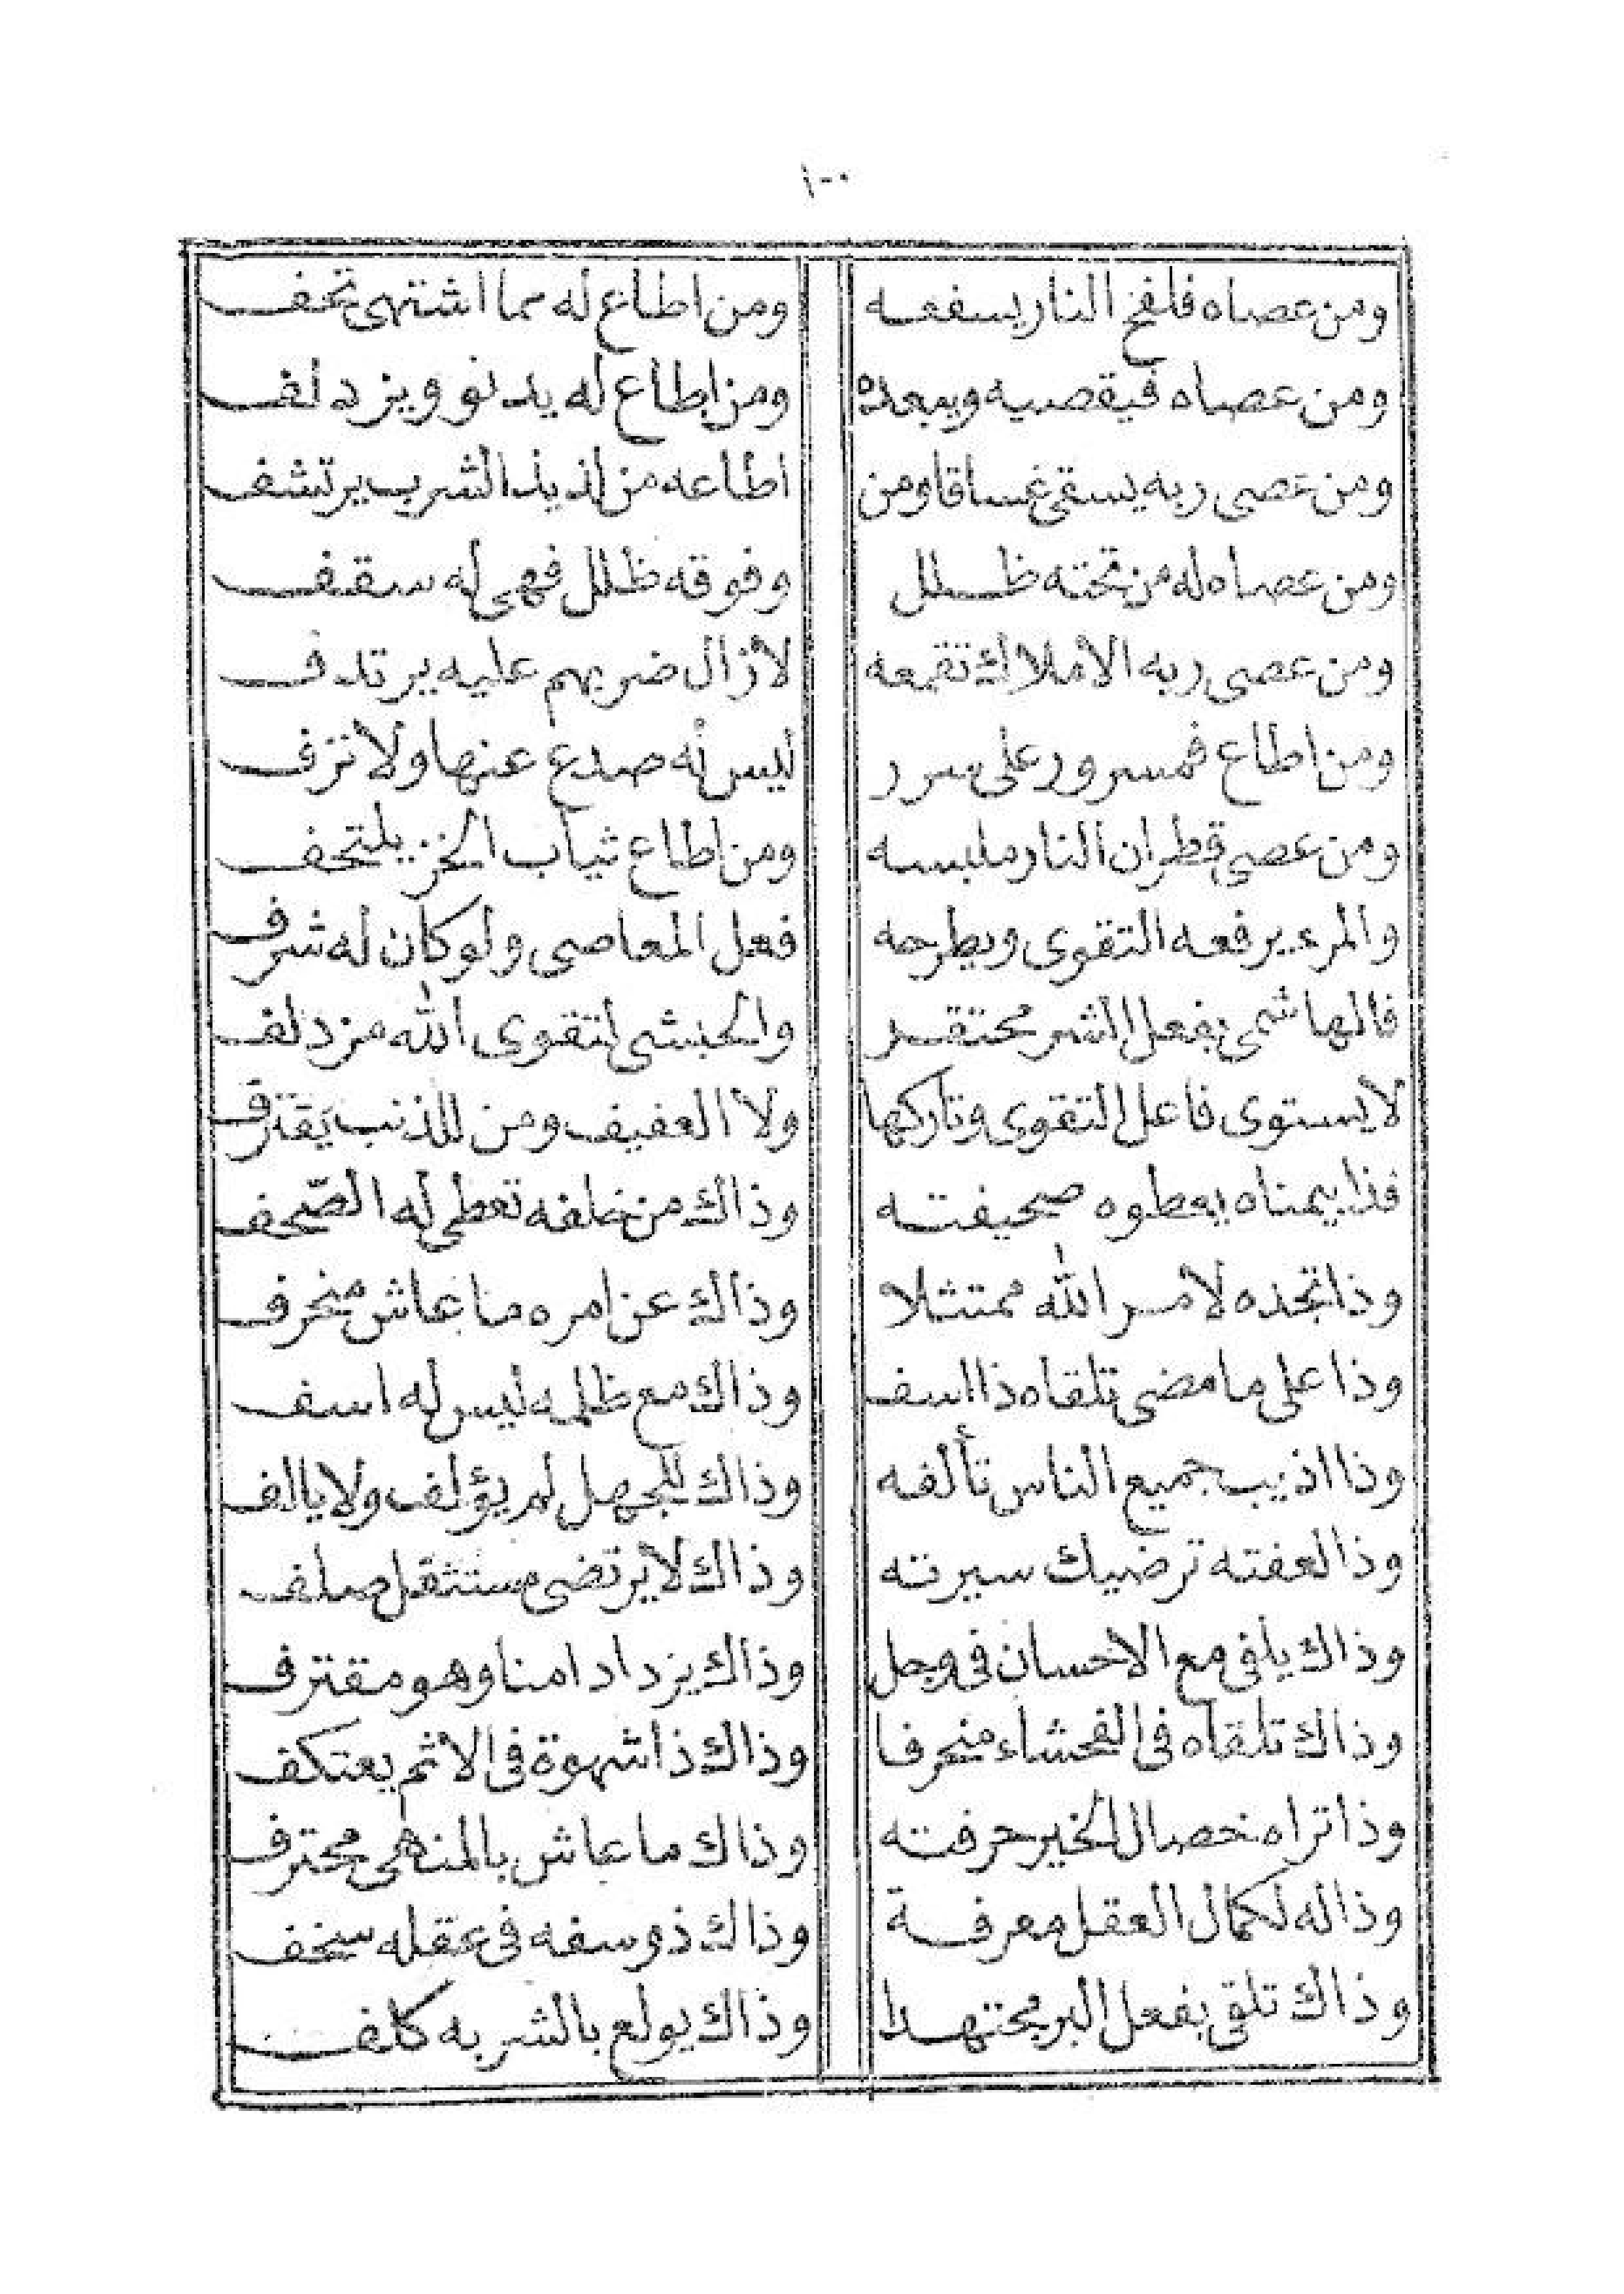 ١٠٠
ومن عصاه فلفح النار يسفعه ومن اطاع له مما اشتهى تحف
ومن عصاه فيقصيه ويبعده ومن اطاع له يدنو ويزدلف
ومن عصى ربه يسقى غساقا ومن اطاعه من لذيذ الشرب يرتشف
ومن عصاه له من تحته ظلل وفوقه ظلل فهى له سقف
ومن عصى ربه الأملاك تقمعه لازال ضربهم عليه يرتدف
ومن اطاع فمسرور على سرر ليس له صدع عنها ولا نزف
ومن عصى قطران النار ملبسه ومن اطاع ثياب الخز يلتحف
والمرء يرفعه التقوى ويطرحه فعل المعاصى ولو كان له شرف
فالهاشمى بفعل الشر محتقر والحبشى لتقوى الله مزدلف
لا يستوى فاعل التقوى وتاركها ولا العفيف ومن للذنب يقترف
فذا بيمناه يعطوه صحيفته وذاك من خلفه تعطى له الصّحف
وذا تجده لأمر الله ممتثلا وذاك عن امره ما عاش منحرف
وذا على ما مضى تلقاه ذا اسف وذاك مع ظلمه ليس له اسف
وذا اذيب جميع الناس تألفه وذاك للجهل لم يؤلف ولا يالف
وذا لعفته ترضيك سيرته وذاك لا يرتضى مستثقل صلف
وذاك يلفى مع الاحسان فى وجل وذاك يزداد امنا وهو مقترف
وذاك تلقاه فى الفحشاء منحرفا وذاك ذا شهوة فى الاثم يعتكف
وذا تراه خصال الخير حرفته وذاك ما عاش بالمنهى محترف
وذا له لكمال العقل معرفة وذاك ذو سفه فى عقله سخف
وذاك تلقى بفعل البر مجتهدا وذاك يولع بالشر به كلف